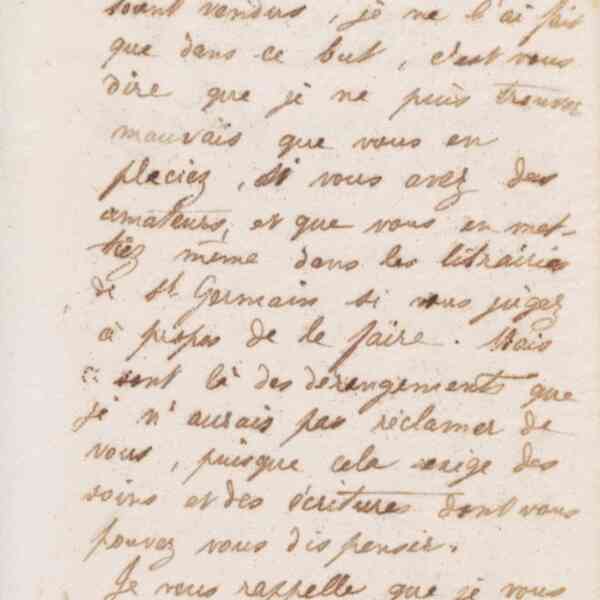 soient vendus, je ne l'ai fait
que dans ce but, c'est vous
dire que je ne puis trouver
mauvais que vous en
placiez, si vous avez des
amateurs, et que vous en met-
tiez même dans les librairies
de St Germain si vous jugez
à propos de le faire. Mais
ce sont là des dérangements que
je n'aurais pas réclamer de
vous, puisque cela exige des
soins et des écritures dont vous
pouvez vous dispenser.
Je vous rappelle que je vous